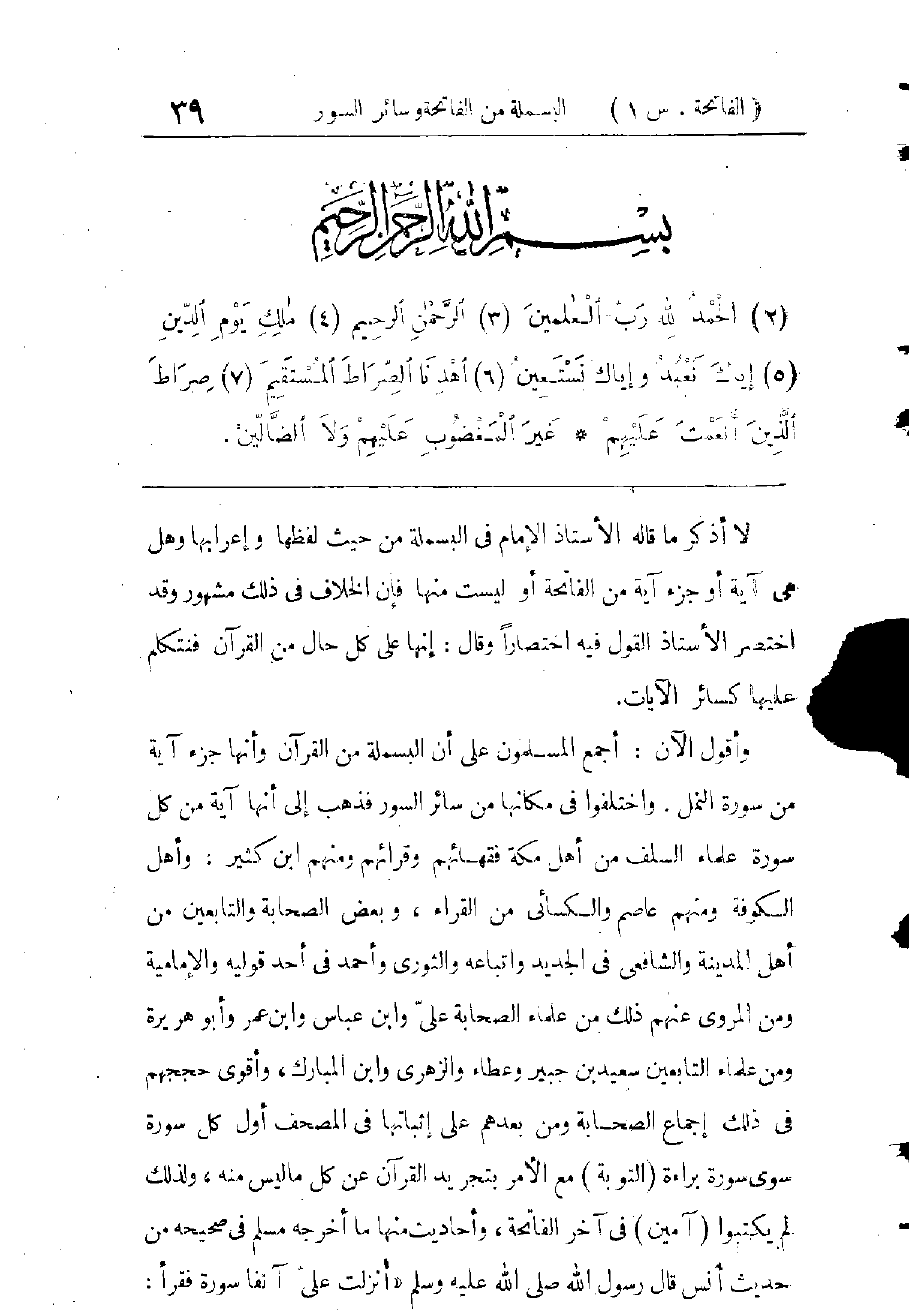 ( الفاتحة . س ١ ) البسملة من الفاتحة وسائر السور ٣٩
بِسْمِ اللهِ الرَّحْمٰنِ الرَّحِيمِ
(٢) الْحَمْدُ لِلهِ رَبِّ الْعٰلَمِينَ (٣) الرَّحْمٰنِ الرحِيمِ (٤) مٰلِكِ يَوْمِ الدِّينِ
(٥) إِيَّاكَ نَعْبُدُ وإِيَّاكَ نَسْتَعِينُ (٦) اهْدِنَا الصِّرَاطَ الْمُسْتَقِيمَ (٧) صِرَاطَ
الَّذِينَ أَنْعَمْتَ عَلَيْهِمْ * غَيْرِ الْمَغْضُوبِ عَلَيْهِمْ وَلاَ الضَّالِّينَ .
لا أذكر ما قاله الأستاذ الإمام فى البسملة من حيث لفظها وإعرابها وهل
هى آية أو جزء آية من الفاتحة أو ليست منها فإن الخلاف فى ذلك مشهور وقد
اختصر الأستاذ القول فيه اختصاراً وقال : إنها على كل حال من القرآن فنتكلم
عليها كسائر الآيات.
وأقول الآن : أجمع المسلمون على أن البسملة من القرآن وأنها جزء آية
من سورة النمل . واختلفوا فى مكانها من سائر السور فذهب إلى أنها آية من كل
سورة علماء السلف من أهل مكة فقهائهم وقرائهم ومنهم ابن كثير : وأهل
الكوفة ومنهم عاصم والكسائى من القراء ، وبعض الصحابة والتابعين من
أهل المدينة والشافعى فى الجديد واتباعه والثورى وأحمد فى أحد قوليه والإمامية
ومن المروى عنهم ذلك من علماء الصحابة علىّ وابن عباس وابن عمر وأبو هريرة
ومن علماء التابعين سعيد بن جبير وعطاء والزهرى وابن المبارك ، وأقوى حججهم
فى ذلك إجماع الصحابة ومن بعدهم على إثباتها فى المصحف أول كل سورة
سوى سورة براءة (التوبة) مع الأمر بتجريد القرآن عن كل ماليس منه ، ولذلك
لم يكتبوا (آمين) فى آخر الفاتحة ، وأحاديث منها ما أخرجه مسلم فى صحيحه من
حديث أنس قال رسول الله صلى الله عليه وسلم «أنزلت علىّ آنفا سورة فقرأ :